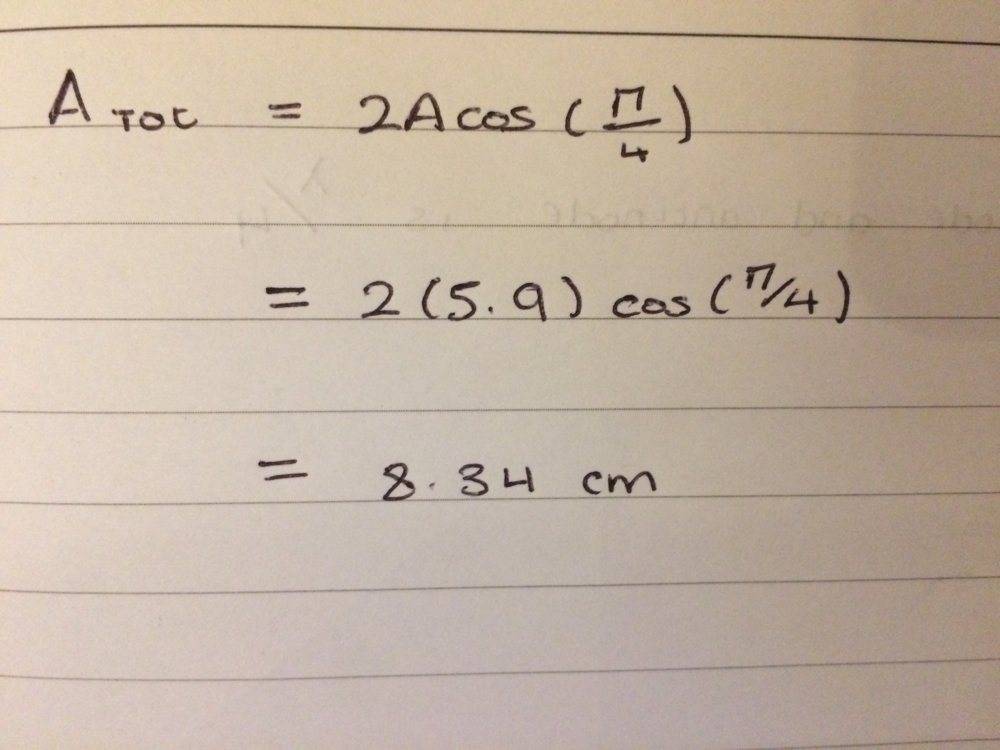 A TOT = 2A cos (π/4)
= 2(5.9) cos (π/4)
= 8.34 cm